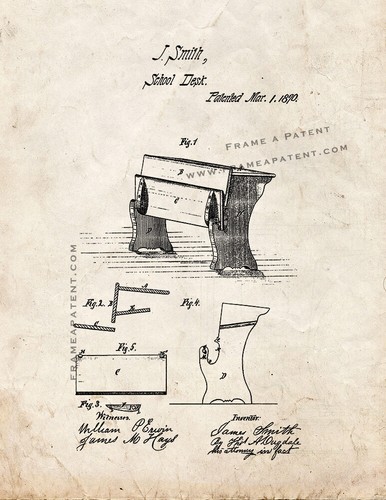 J. Smith,
School Desk.
Patented Mar. 1. 1870.
Fig. 1
FRAME A PATENT
WWW.FRAMEAPATENT.COM
D
C
D
FRAMEAPATENT.COM
Fig. 2.
B
A
Fig. 4.
Fig. 5.
C
D
Fig. 3.
Witnesses.
William P. Erwin
James M Hayd
Inventor.
James Smith
By Thos A. Dugdale
his attorney in fact